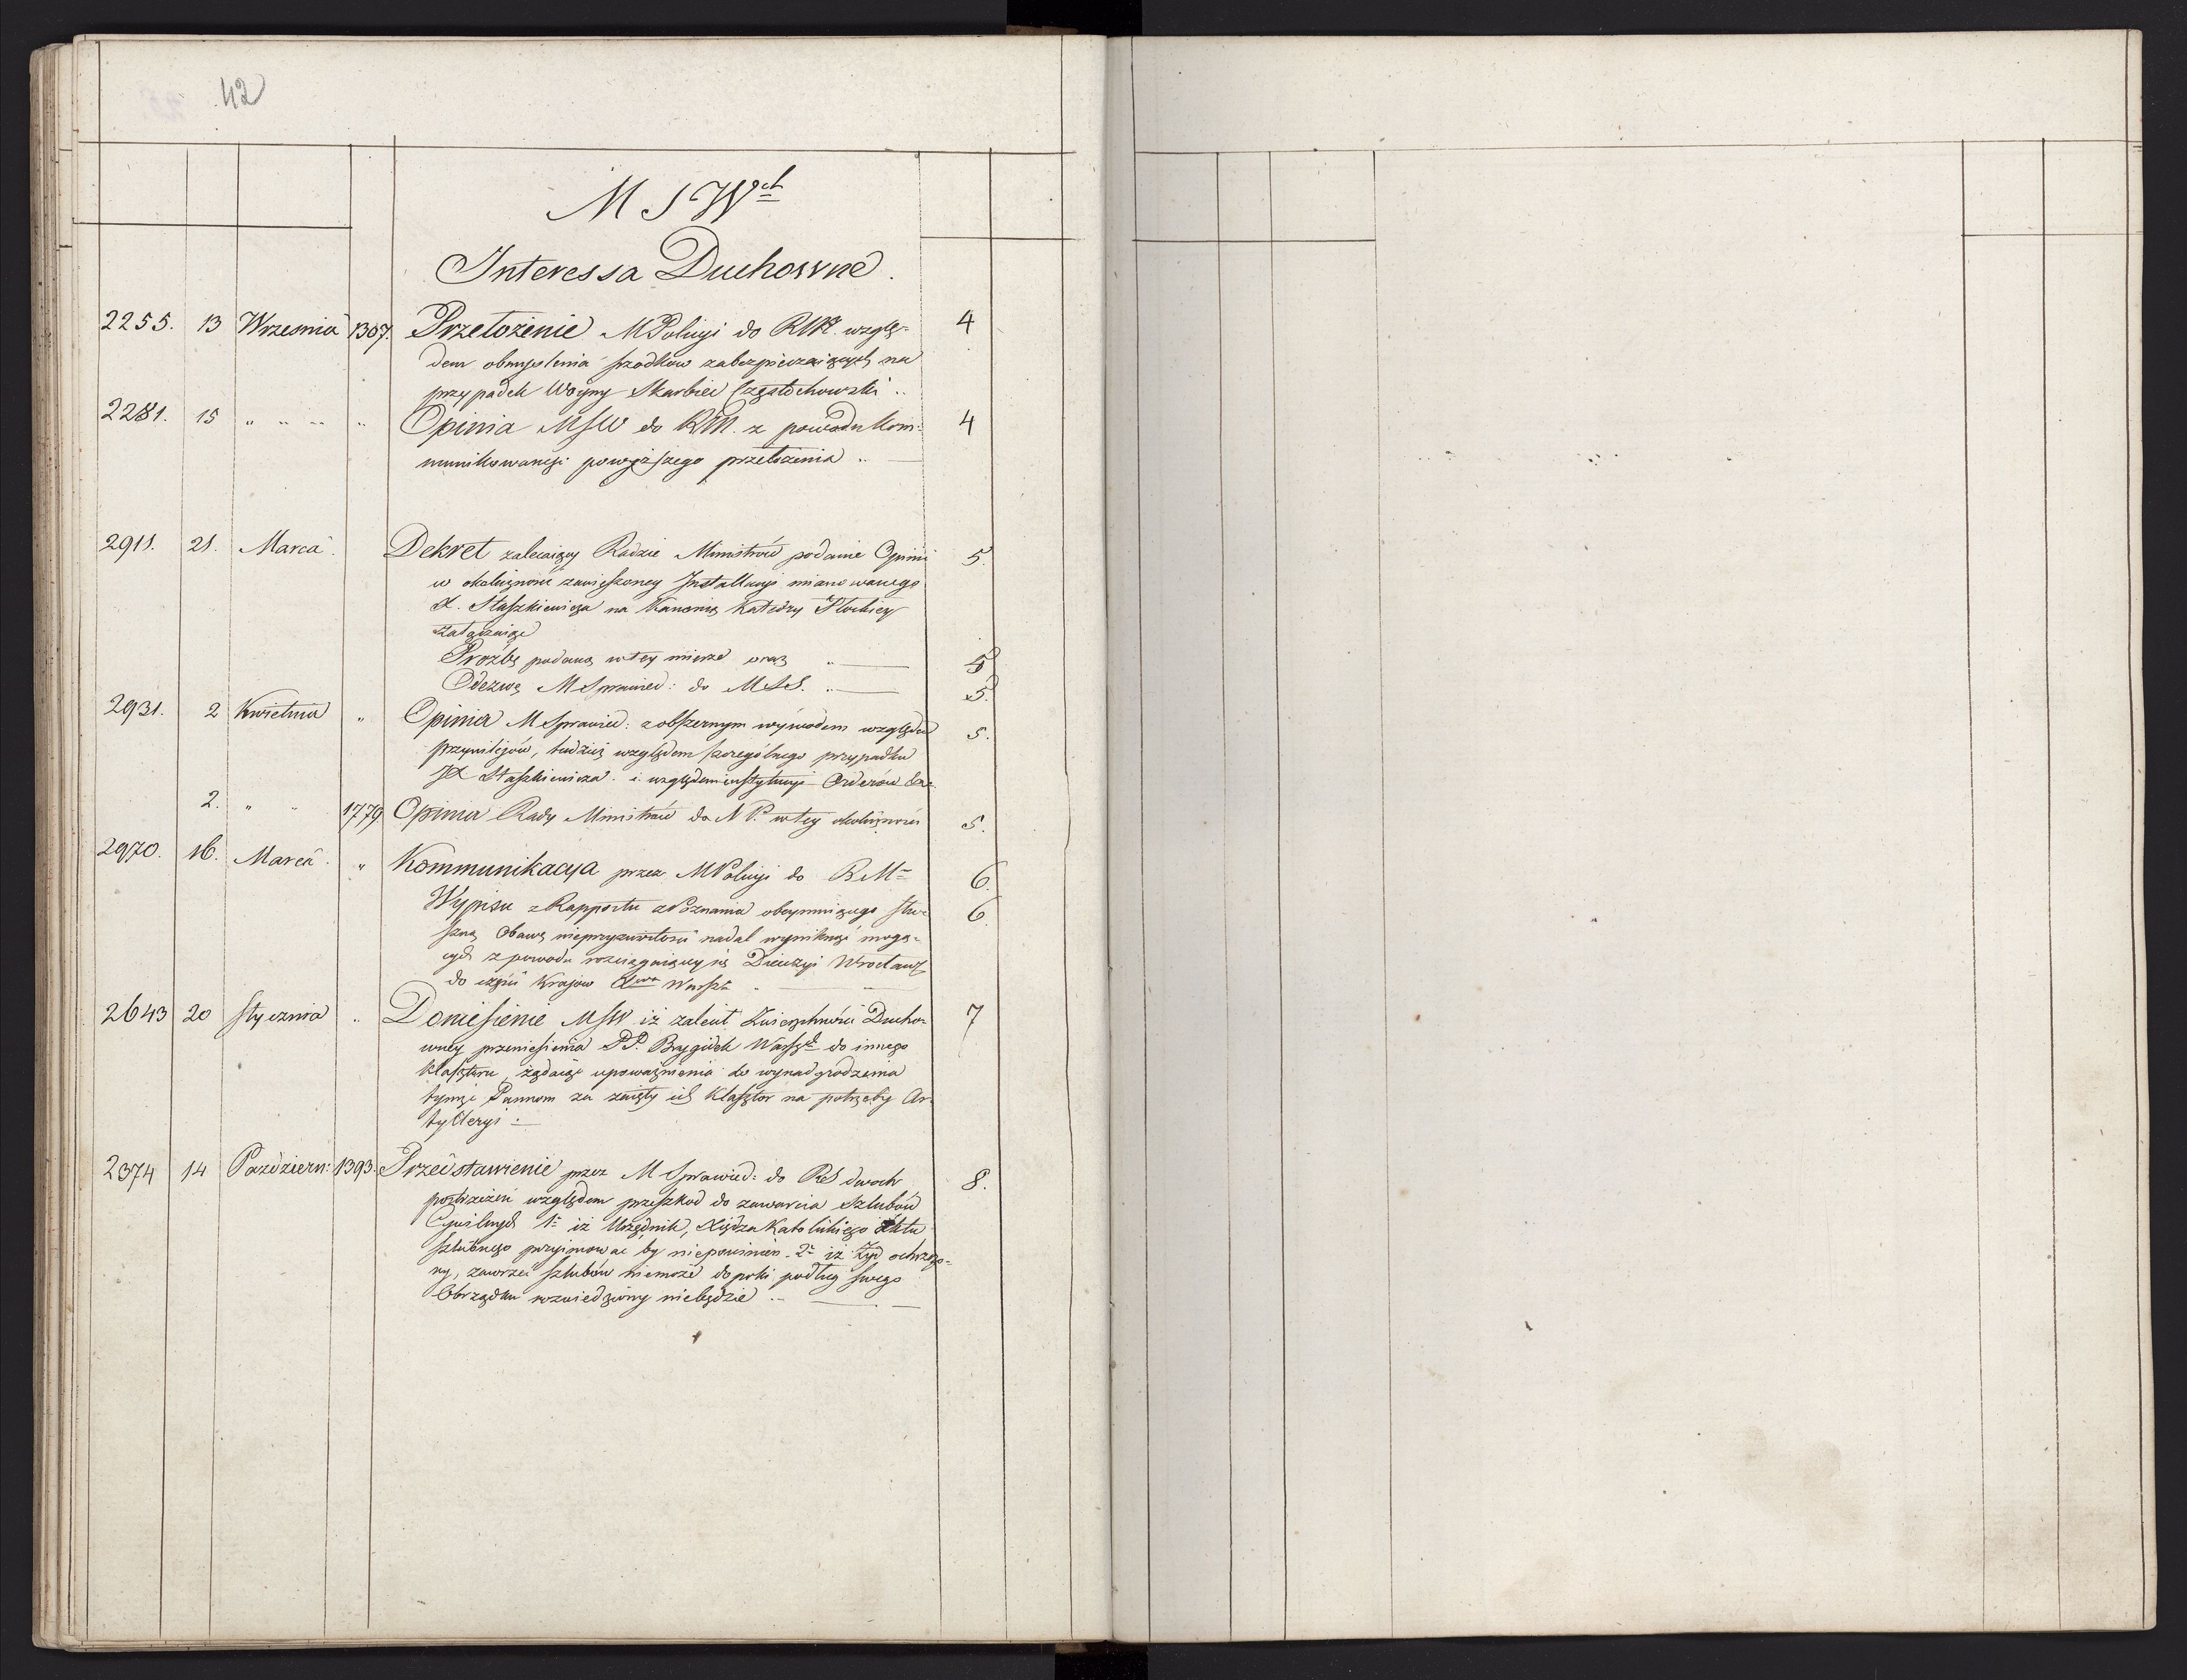 42
M S W<sup>ch</sup>
Interessa Duchowne.
2255. 13 Wrzesnia 1307. Przełożenie M Policyi do RM względ-
dem obmyslenia srodkow zabezpieczaiących na
przypadek Woyny Skarbiec Częstochowski ..
2281. 15 " " " " Opinia MSW do RM. z powodu kom:
munikowanego powyższego przełożenia ..
4
4
2911. 21. Marca. Dekret zalecaiący Radzie Ministrów podanie Opinii 5.
w okoliczności zawieszoney Installacyi mianowanego
X. Staszkiewicza na Kanonią Katedry Płockiey
załączaiąc
Prozbę podaną w tey mierze oraz " 5
Odezwę M Sprawied: do M S S. " 5.
2931. 2 Kwietnia " Opinia M Sprawied: z obszernym wywodem względem 5.
przywilejów, tudzież względem szczególnego przypadku
JX Staszkiewicza. i względem instytucyi Orderów &c
2. " " 1779 Opinia Rady Ministrów do N P. w tey okoliczności 5.
2970. 16. Marca. " Kommunikacya przez M Policyi do RM= 6.
Wypisu z Rapportu z Poznania obeymuiącego słu- 6
szną Obawę nieprzyzwoitości nadal wyniknąć mogą-
cych z powodu rozciągaiącey się Diecezyi Wrocław
do części Kraiow Xwa Warsz.
2643 20 Stycznia " Doniesienie MSW iż zalecił Zwierzchności Ducho- 7
wney przeniesienia PP. Brygidek Warsz do innego
klasztoru, żądaiąc upoważnienia do wynadgrodzenia
tymże Pannom za zaięty ich Klasztor na potrzeby Ar-
tylleryi :
2374 14 Pazdziern: 1393. Przedstawienie przez M Sprawied: do RS dwoch 8.
postrzeżeń względem przeszkod do zawarcia Szlubów
Cywilnych 1= iż Urzędnik, Xiędza Katolickiego Aktu
szlubnego przyimować by niepowinien. 2= iż Żyd ochrzco-
ny, zawrzeć szlubów niemoże dopoki podług swego
Obrządku rozwiedziony niebędzie ..